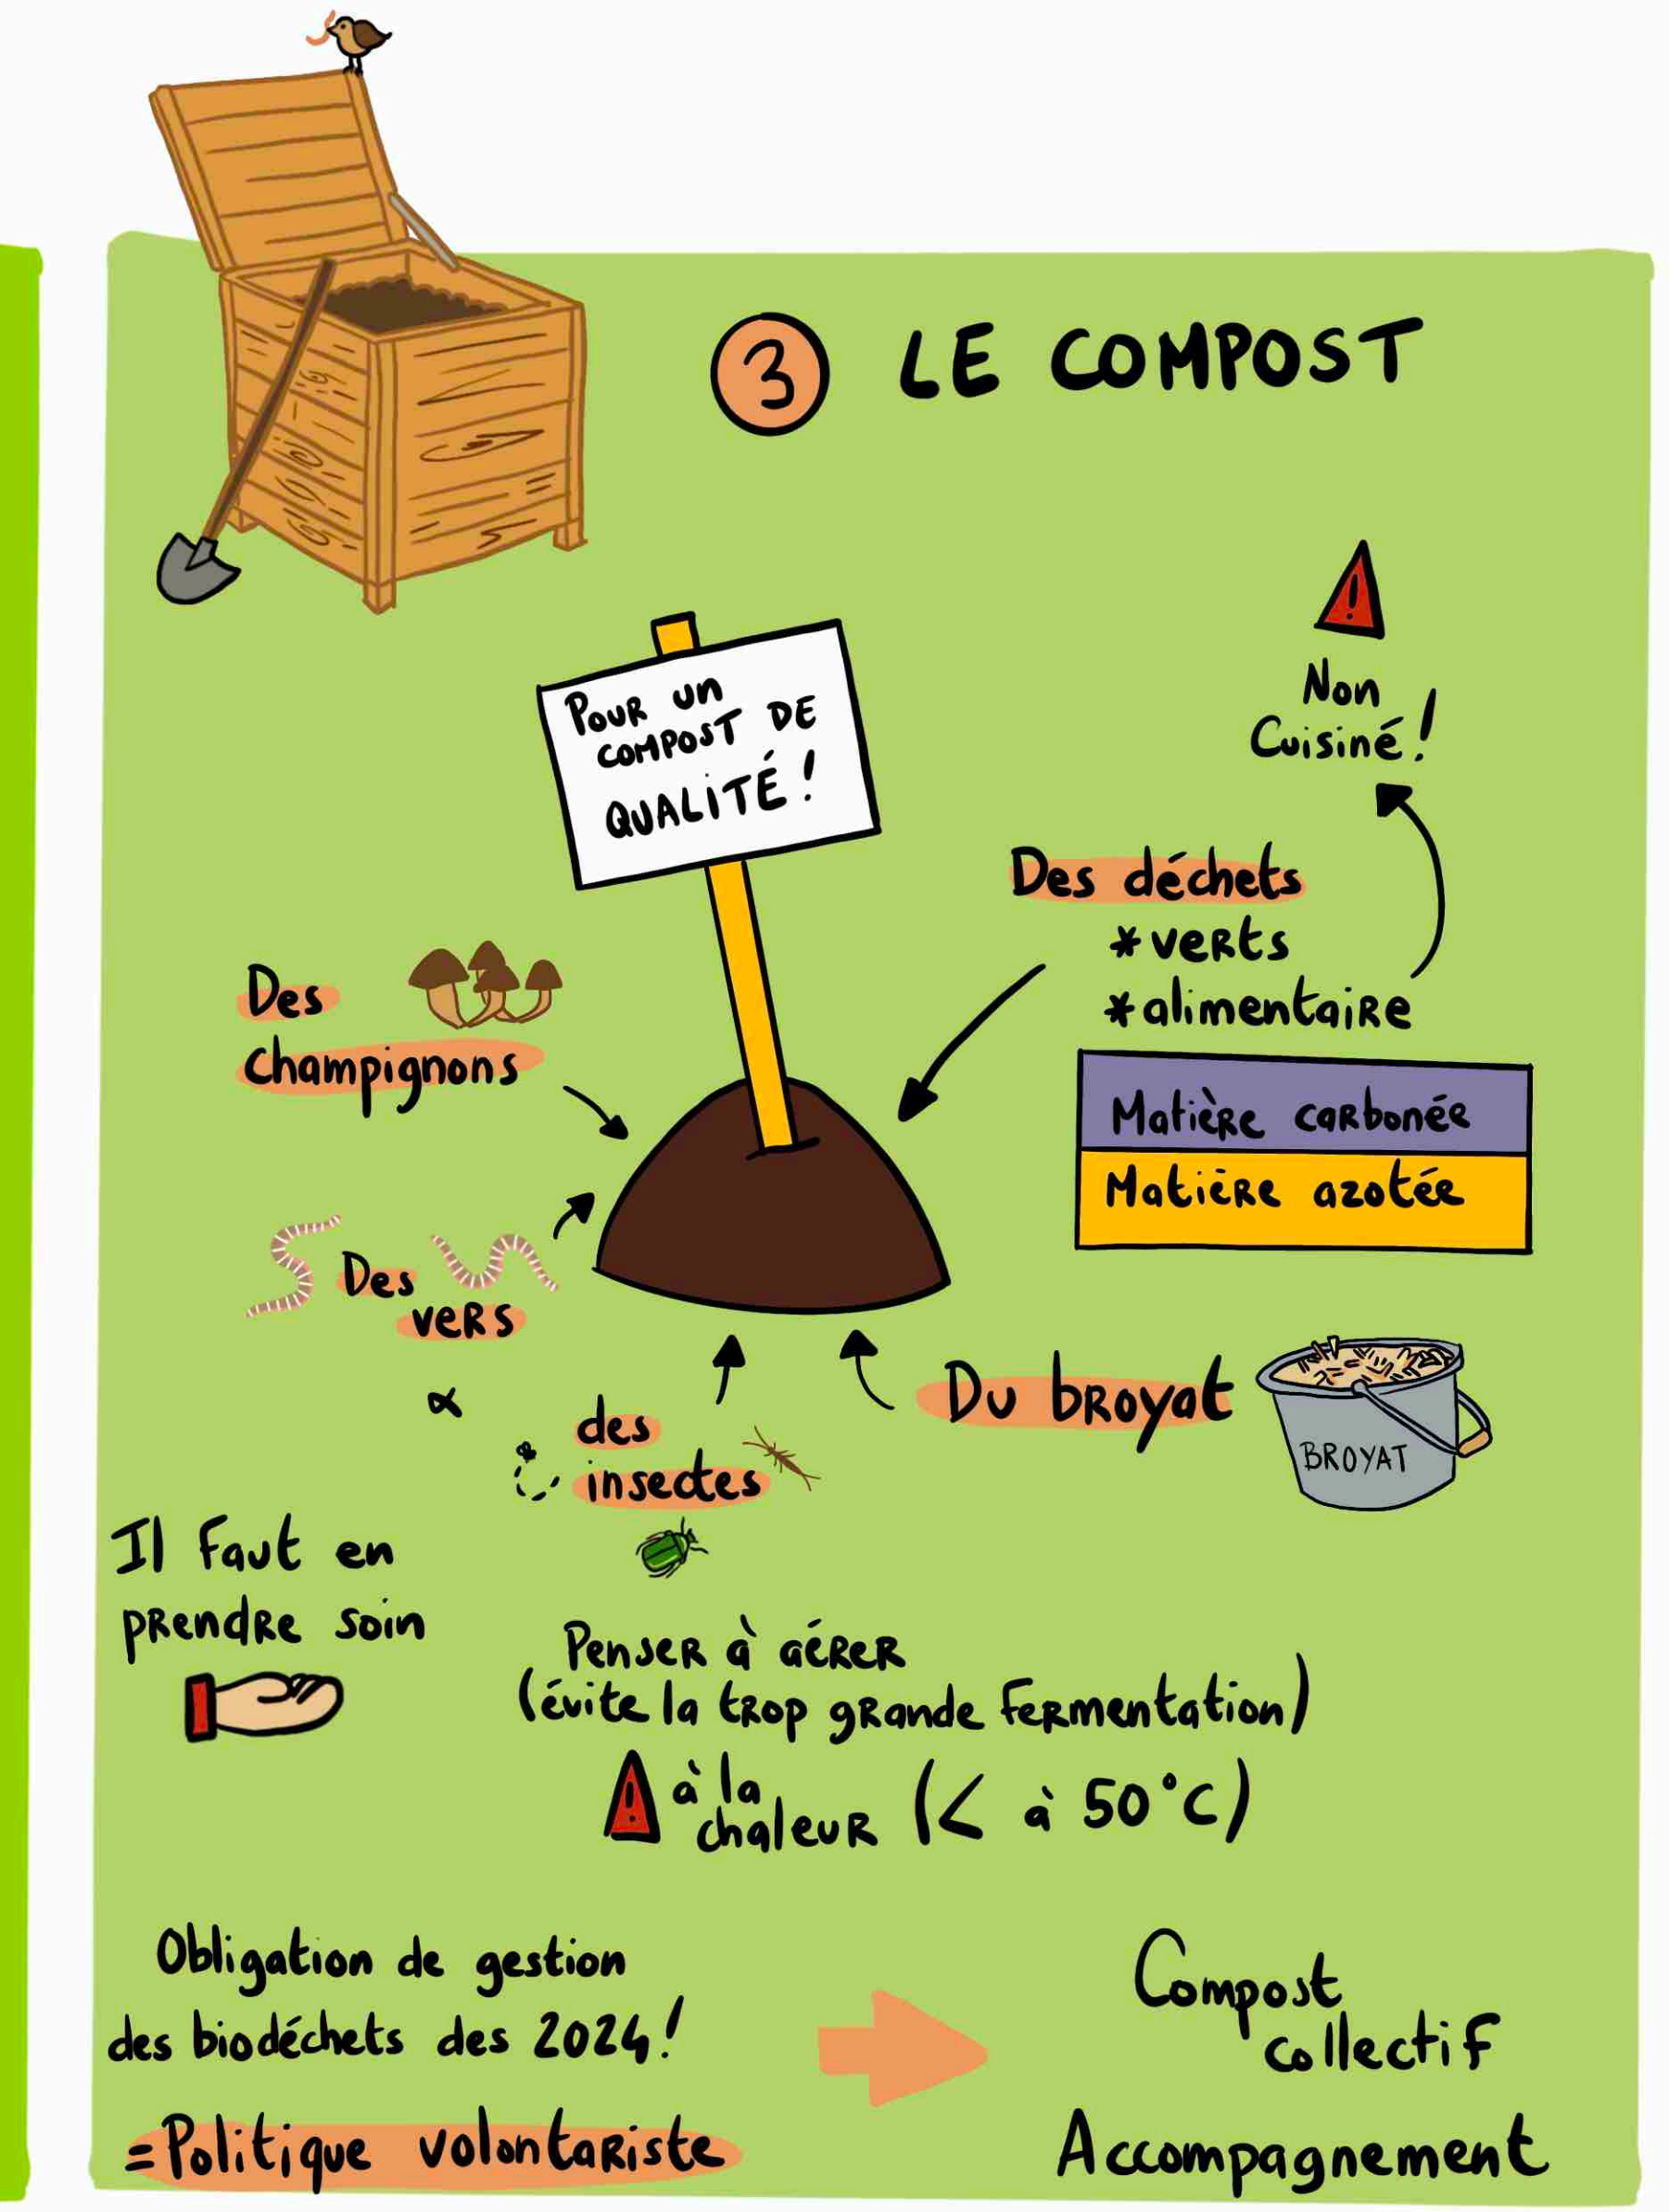 3 LE COMPOST
POUR UN
COMPOST DE
QUALITÉ !
Non
Cuisiné !
Des déchets
* verts
* alimentaire
Matière carbonée
Matière azotée
Des
champignons
Des
vers
des
insectes
Du broyat
BROYAT
Il faut en
prendre soin
Penser à aérer
(évite la trop grande fermentation)
à la
chaleur (< à 50°C)
Obligation de gestion
des biodéchets des 2024 !
= Politique volontariste
Compost
collectif
Accompagnement